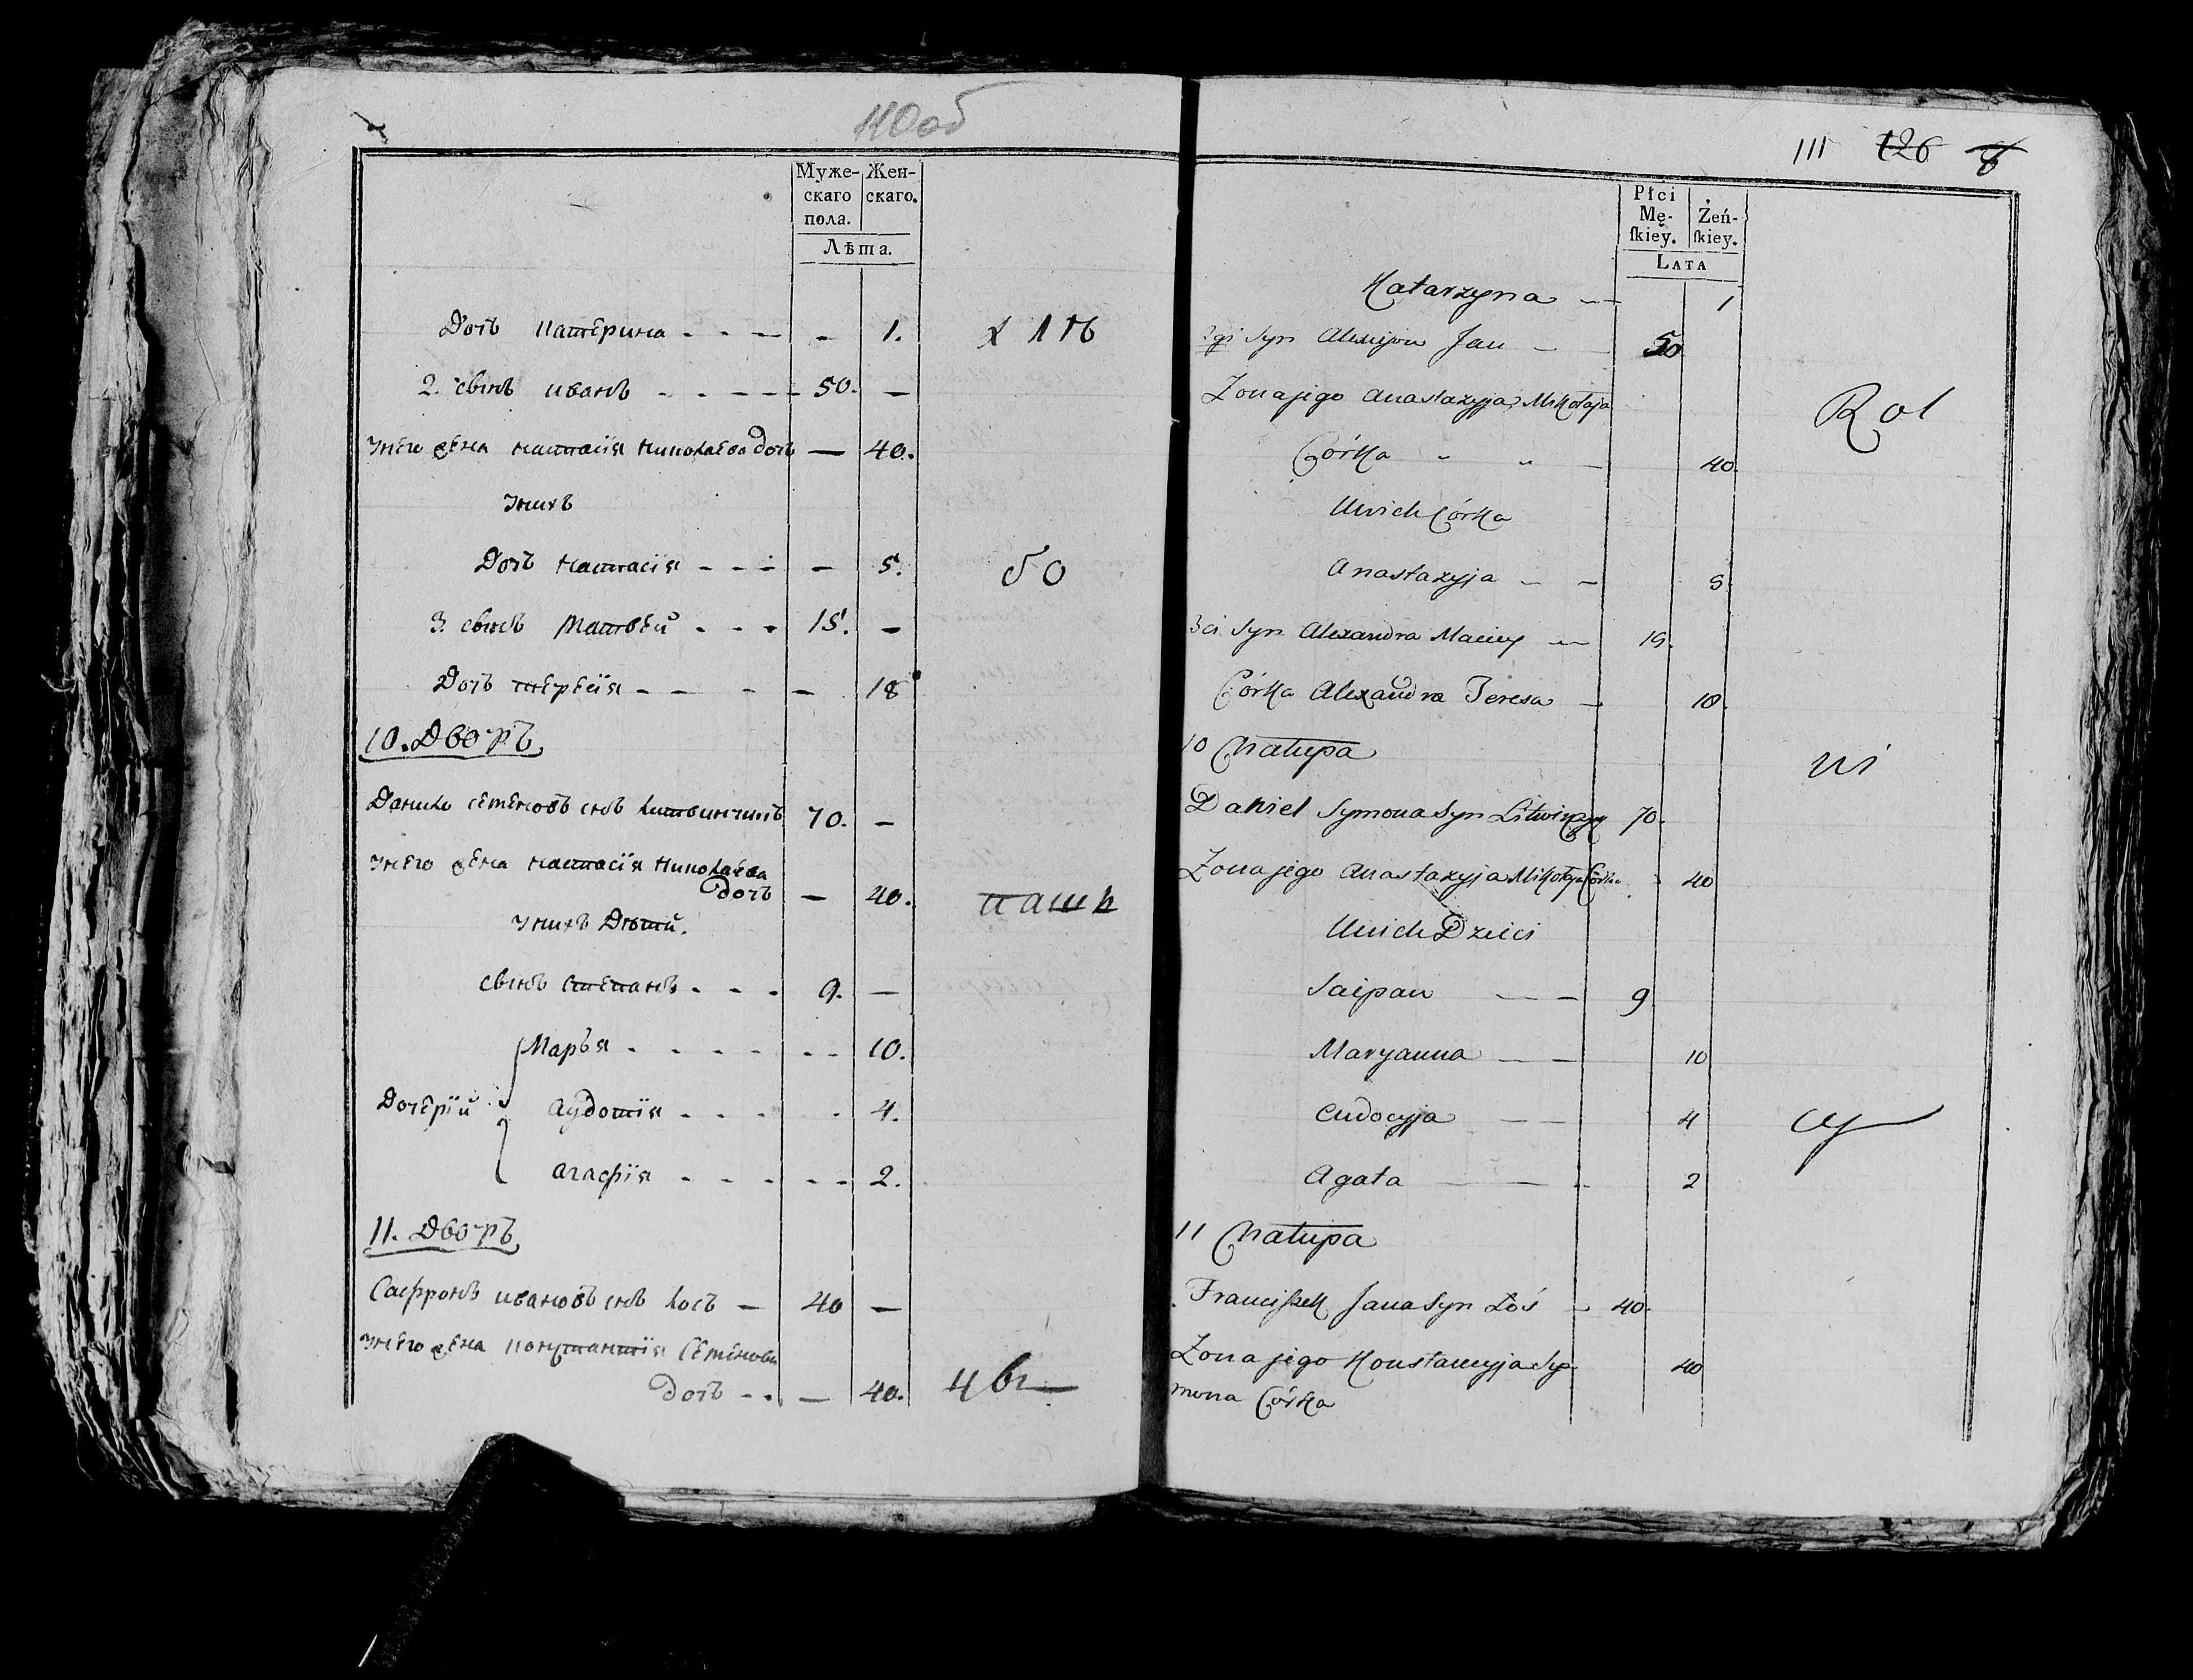 110об
Муже- Жен-
скаго скаго.
пола.
Лѣта.
Дочь катерина - - - - 1.
2. сынъ иванъ - - - - - 50. -
унего жена настасія николаева дочь - 40.
унихъ
Дочь настасія - - - - 5. 50
3. сынъ Матвей - - - 15. -
Дочь терезія - - - - 18
10. Дворъ
Данило семеновъ снъ литвинчикъ 70. -
унего жена настасія николаева
дочь - 40.
унихъ Дѣтй.
сынъ степанъ - - - 9. -
Марья - - - - - - 10.
Дочерій аудотія - - - - 4.
агафія - - - - - 2.
11. Дворъ
Сафронъ ивановъ снъ лось - 40 -
унего жена константія семенова
дочь - - - 40.
111 126
Płci
Mę- Żeń-
ſkiey. ſkiey.
LATA
Katarzyna - - 1
2gi Syn Alexijow Jan - - 50
Żona jego Anastazyja Mikołaja
Córka " " - 40
U nich Córka
Anastazyja - - 5
3ci Syn Alexandra Maciey - 15.
Córka Alexandra Teresa - 18
10 Chałupa
Daniel Symona Syn Litwinczyk 70.
Żona jego Anastazyja Mikołaja Córka 40
U nich Dzieci
Szczepan - - 9
Maryanna - - 10
Eudocyja - - 4
Agata - - - 2
11 Chałupa
Franciſzek Jana Syn Łoś - 40.
Żona jego Konstancyja Sy- 40
mona Córka